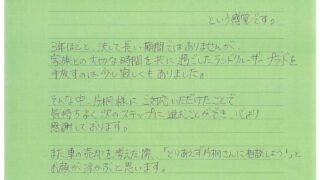 という感覚です。
3年ほどと、決して長い期間ではありませんが、
家族との大切な時間を共に過ごしたランドクルーザープラドを
手放すのは少し寂しくもありました。
そんな中、片桐様にご対応いただけたことで
気持ちよく次のステップに進むことができ、心より
感謝しております。
また車の売却を考えた際、「とりあえず片桐さんに相談しよう！」と
お顔が浮かぶと思います。